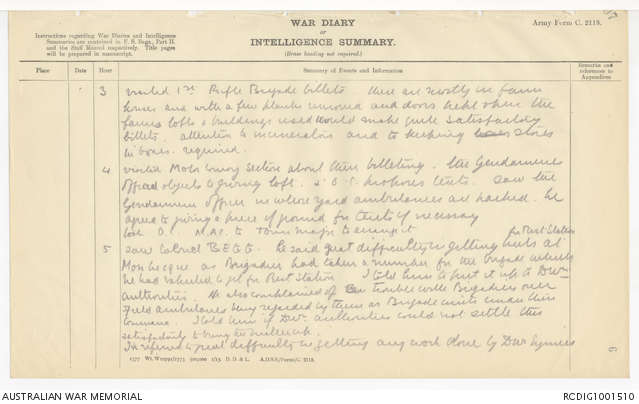 WAR DIARY
or
INTELLIGENCE SUMMARY.
(Erase heading not required.)
Army Form C. 2118.
Instructions regarding War Diaries and Intelligence
Summaries are contained in F. S. Regs., Part II.
and the Staff Manual respectively. Title pages
will be prepared in manuscript.
Place
Date
Hour
Summary of Events and Information
Remarks and
references to
Appendices
3 visited 1st Rifle Brigade billets they are mostly in farm
houses and with a few planks removed and doors kept open the
farms lofts & buildings used would make quite satisfactory
billets. attention to incinerators and to keeping stores
in boxes required.
4 visited Motor Convoy Section about their billeting. the Gendarmerie
officer objects to giving loft. proposes tents. Saw the
Gendarmerie officer in where yard ambulances are parked. he
agreed to giving a piece of ground for tents if necessary
O.C. M.A.C. to Town major to arrange it
for Rest Station
5 Saw Colonel BEGG. He said great difficulty in getting huts at
as Brigadier had taken a number for the brigade which
he had wanted to get for Rest Station I told him to put it up to Divn.
authorities. He also complained of trouble with Brigadiers over
Field ambulances being regarded by them as Brigade units under their
command. I told him if Divn. authorities could not settle this
satisfactorily to bring the
He referred to great difficulty in getting any work done by Divn Engineers
6
1577 Wt. 2/15 D. D. & L. A.D.S.S./Forms/C. 2118.
AUSTRALIAN WAR MEMORIAL
RCDIG1001510